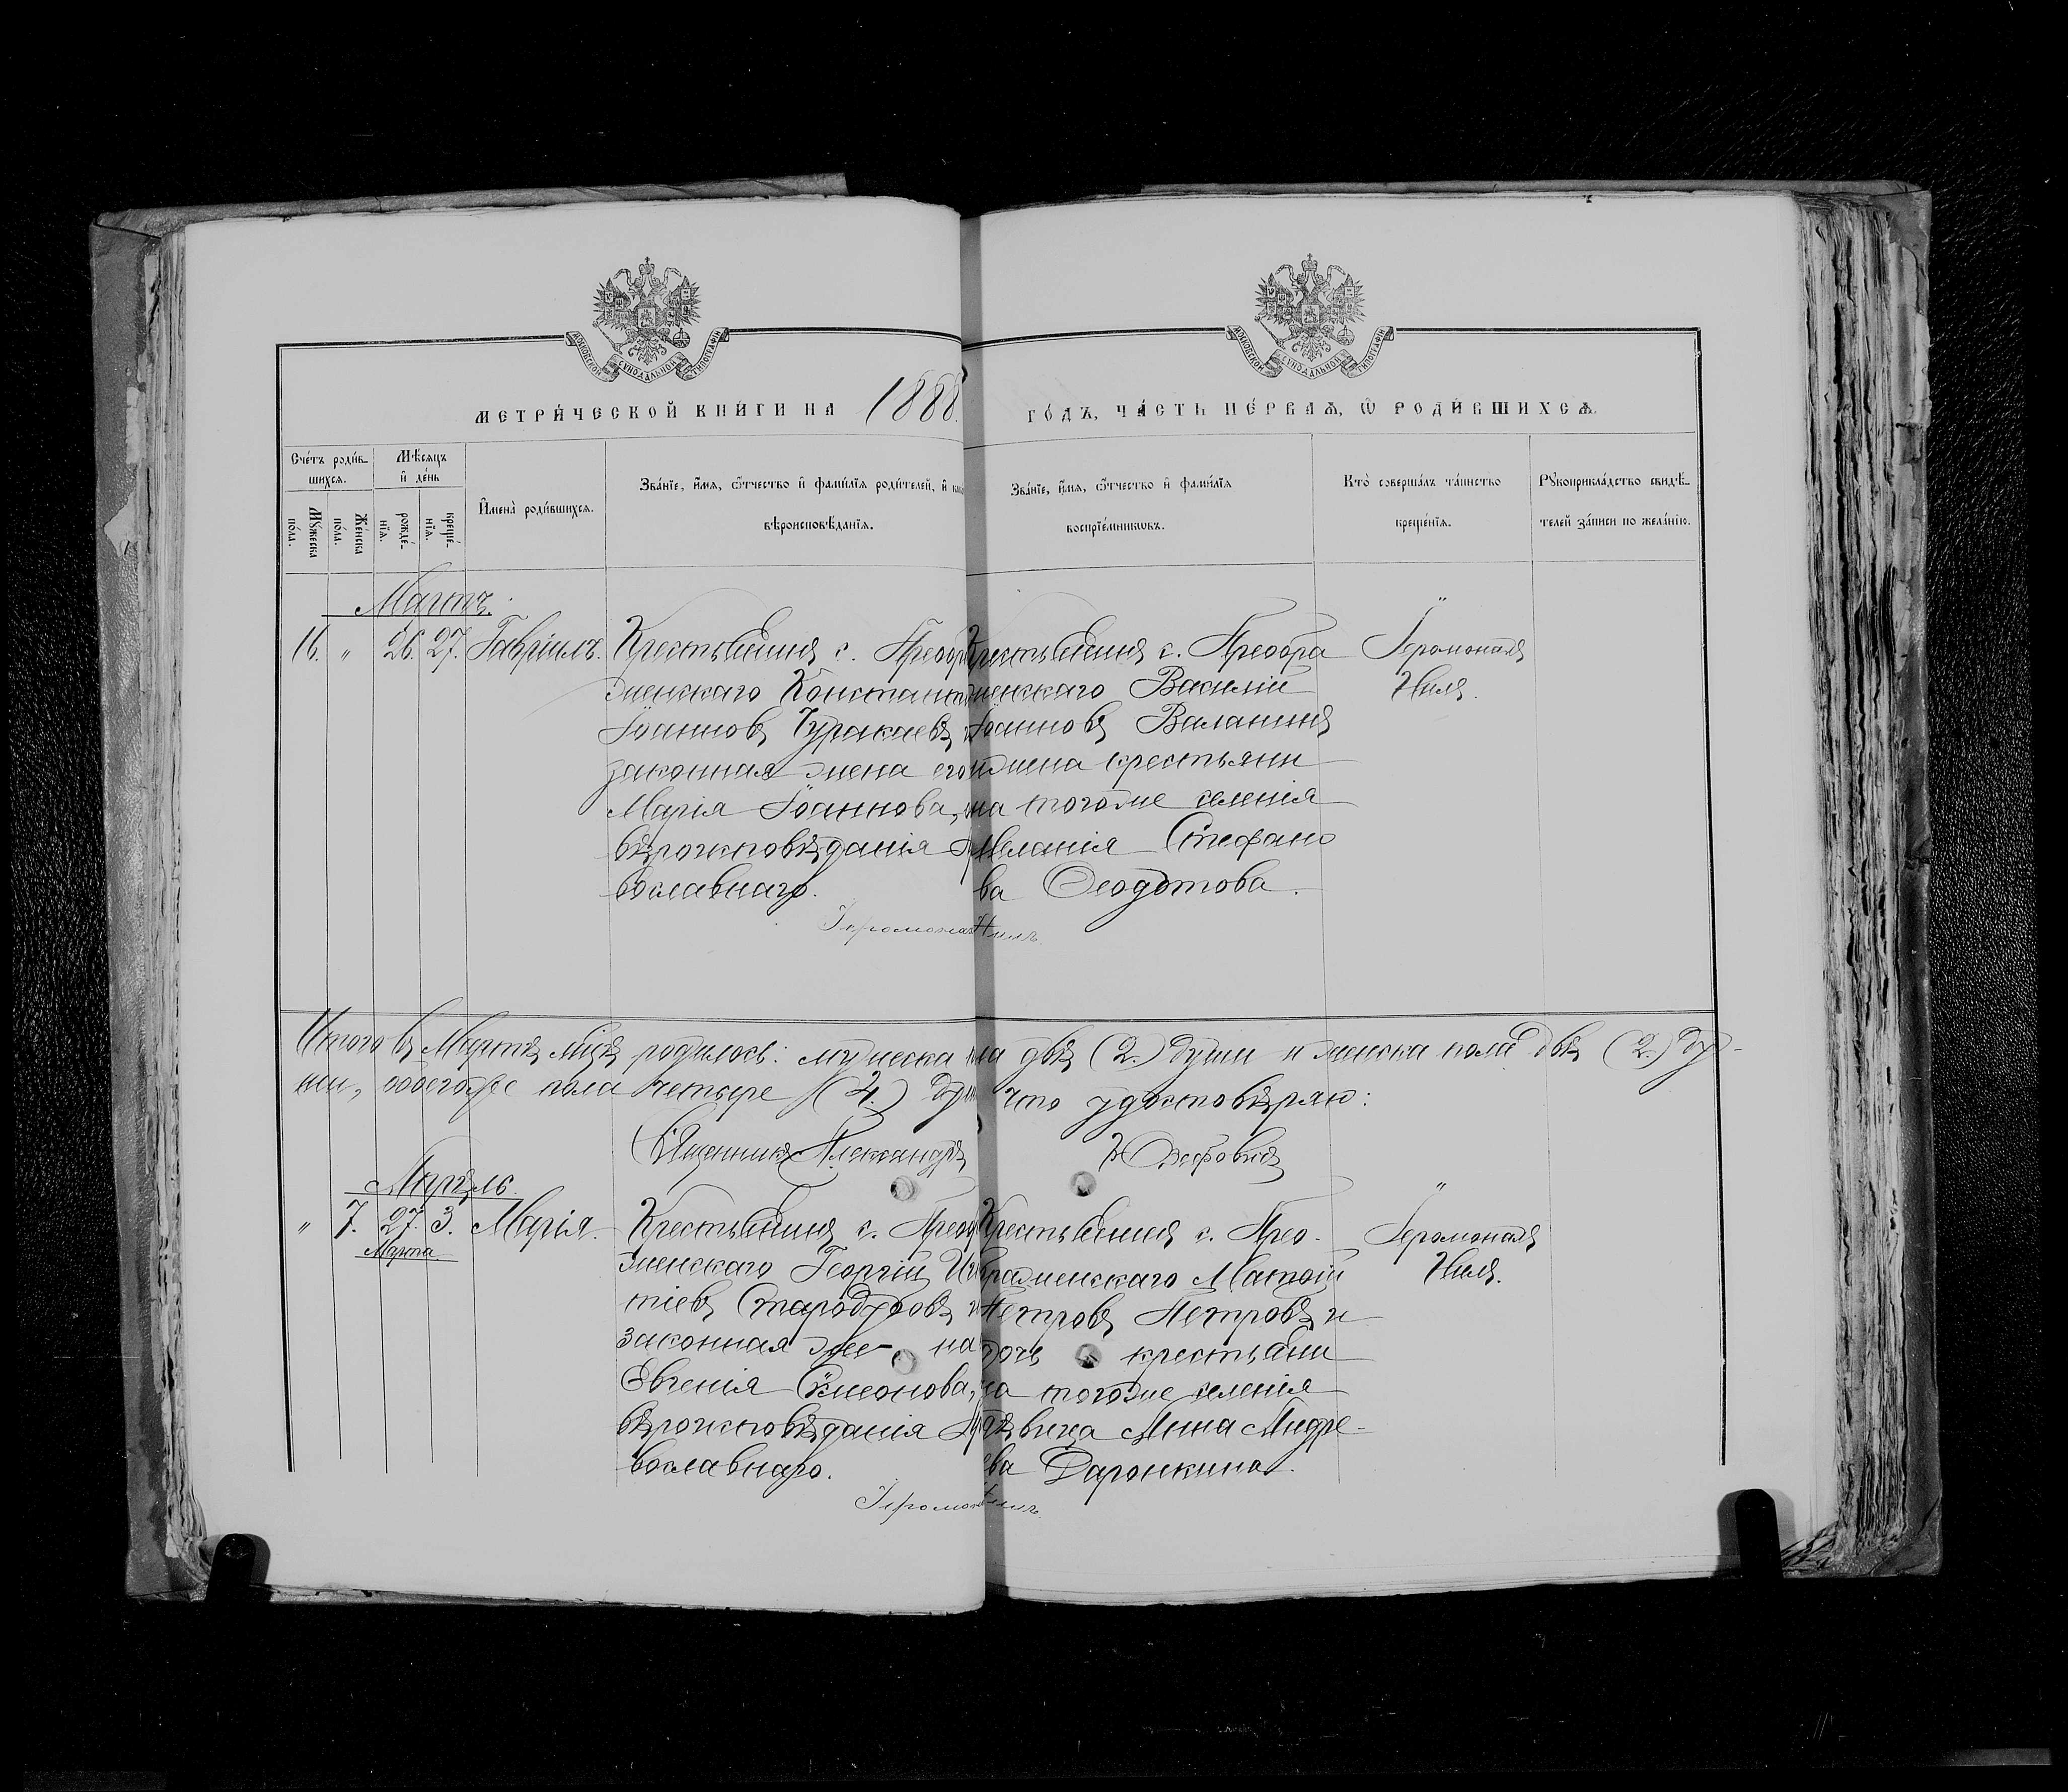 МОСКОВСКОЙ СѴНОДАЛЬНОЙ ТИПОГРАФІИ
МОСКОВСКОЙ СѴНОДАЛЬНОЙ ТИПОГРАФІИ
МЕТРИ́ЧЕСКОЙ КНИ́ГИ НА 1888
ГО́ДЪ, ЧА́СТЬ ПЕ́РВАѦ, Ѡ҆ РОДИ́ВШИХСѦ.
Сче́тъ роди́в-
шихсѧ.
Мꙋ́жеска
по́ла.
Же́нска
по́ла.
Мѣ́сѧцъ
и҆ де́нь
рожде́-
нїѧ.
креще́-
нїѧ.
И҆мена̀ роди́вшихсѧ.
Зва́нїе, и҆́мѧ, ѻ҆́тчество и҆ фами́лїѧ роди́телей, и҆
вѣроисповѣ́данїѧ.
Зва́нїе, и҆́мѧ, ѻ҆́тчество и҆ фами́лїѧ
воспрїе́мникѡвъ.
Кто̀ соверша́лъ та́инство
креще́нїѧ.
Рꙋкоприкла́дство свидѣ́-
телей за́писи по жела́нїю.
Мартъ.
16. " 26. 27. Гавріилъ. Крестьянинъ с. Преобр
женскаго Констант
Іоанновъ Чуракаевъ
законная жена его
Марія Іоаннова,
вѣроисповѣданія
вославнаго.
Крестьянинъ с. Преобра
женскаго Василій
Іоанновъ Валанинъ
и жена крестьяни
на тогоже селенія
Меланія Стефано
ва Ѳеодотова.
Іеромонахъ
Нилъ.
Іеромонах Нилъ.
Итого въ Мартѣ м-цѣ родилось: мужеска па двѣ (2.) души и женска пола двѣ (2.) ду-
ши, обоего же пола четыре (4.) ду что удостовѣряю:
Священникъ Александръ
Апрѣль.
" 7. 27. 3. Марія.
Марта
Крестьянинъ с. Преоб
женскаго Георгій Иг
тіевъ Стародубовъ и
законная же- на
Евгенія Симеонова,
вѣроисповѣданія Пр
вославнаго.
Крестьянинъ с. Прео-
браженскаго Матѳій
Петровъ Петровъ и
дочь крестьяни
на тогоже селенія
дѣвица Анна Андре-
ева Даронкина.
Іеромонахъ
Нилъ.
Іеромонах Нилъ.